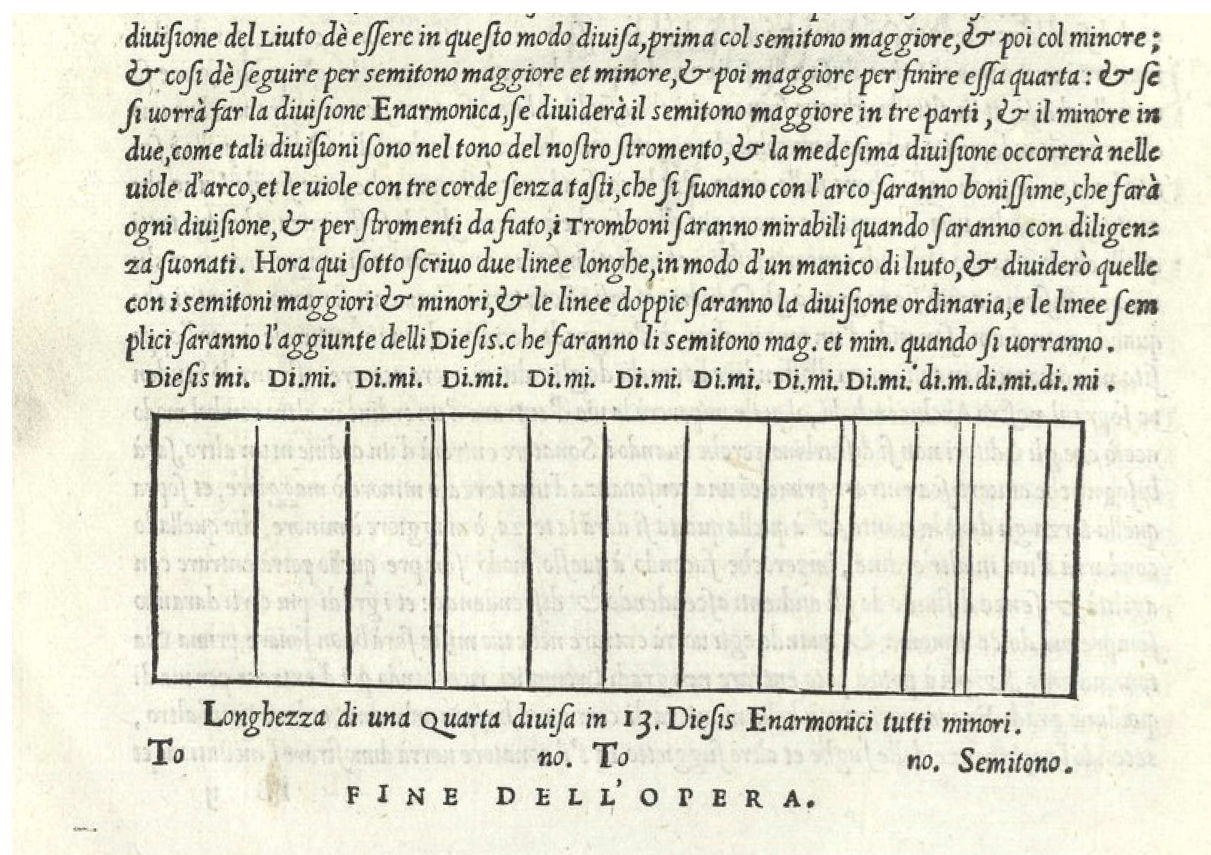 diuiſione del Liuto dè eſſere in queſto modo diuiſa,prima col semitono maggiore,& poi col minore;
& coſi dè ſeguire per semitono maggiore et minore,& poi maggiore per finire eſſa quarta: & ſe
ſi uorrà far la diuiſione Enarmonica,ſe diuiderà il semitono maggiore in tre parti,& il minore in
due,come tali diuiſioni ſono nel tono del noſtro ſtromento,& la medeſima diuiſione occorrerà nelle
uiole d'arco,et le uiole con tre corde ſenza taſti,che ſi ſuonano con l'arco ſaranno boniſſime,che farà
ogni diuiſione,& per ſtromenti da fiato,i Tromboni ſaranno mirabili quando ſaranno con diligen=
za ſuonati. Hora qui ſotto ſcriuo due linee longhe,in modo d'un manico di liuto,& diuiderò quelle
con i semitoni maggiori & minori,& le linee doppie ſaranno la diuiſione ordinaria,e le linee ſem
plici ſaranno l'aggiunte delli Dieſis.che faranno li semitono mag. et min. quando ſi uorranno.
Dieſis mi. Di.mi. Di.mi. Di.mi. Di.mi. Di.mi. Di.mi. Di.mi. Di.mi. di.m.di.mi.di. mi.
Longhezza di una Quarta diuiſa in 13. Dieſis Enarmonici tutti minori.
To no. To no. Semitono.
FINE DELL'OPERA.